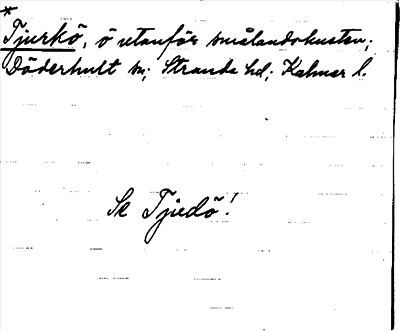 *
Tjurkö, ö utanför smålandskusten;
Döderhult sn; Stranda hd; Kalmar l.
Se Tjuedö!